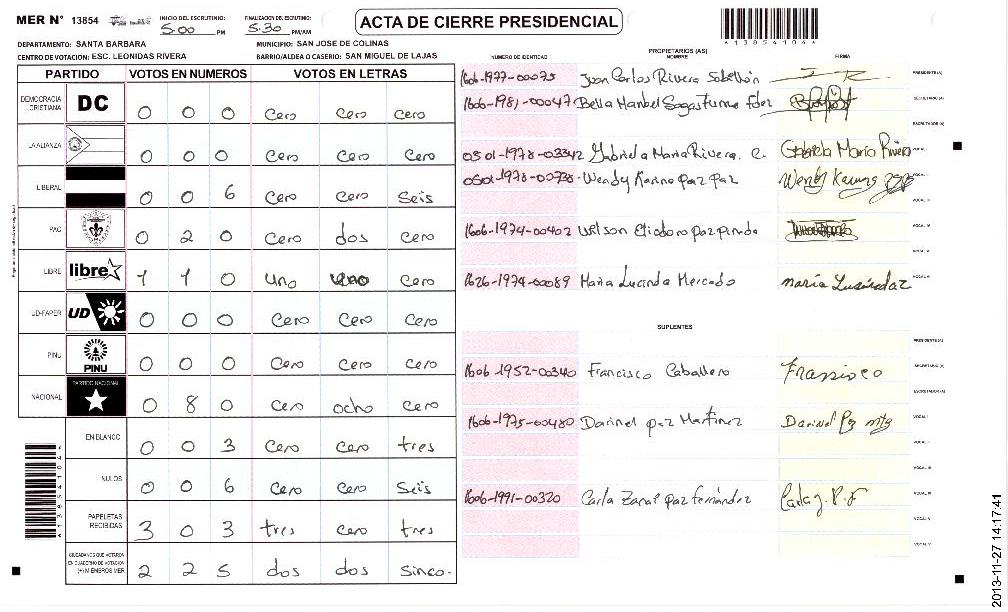 MER N° 13854
INICIO DEL ESCRUTINIO: 5:00 PM
FINALIZACION DEL ESCRUTINIO: 5:30 PM/AM
ACTA DE CIERRE PRESIDENCIAL
DEPARTAMENTO: SANTA BARBARA
MUNICIPIO: SAN JOSE DE COLINAS
CENTRO DE VOTACION: ESC. LEONIDAS RIVERA
BARRIO/ALDEA O CASERIO: SAN MIGUEL DE LAJAS
PARTIDO VOTOS EN NUMEROS VOTOS EN LETRAS
DEMOCRACIA CRISTIANA DC 0 0 0 Cero Cero Cero
LA ALIANZA 0 0 0 Cero Cero Cero
LIBERAL 0 0 6 Cero Cero Seis
PAC 0 2 0 Cero dos Cero
LIBRE libre 1 1 0 Uno uno Cero
UD-FAPER UD 0 0 0 Cero Cero Cero
PINU PINU 0 0 0 Cero Cero Cero
NACIONAL PARTIDO NACIONAL 0 8 0 Cero ocho Cero
EN BLANCO 0 0 3 Cero Cero tres
NULOS 0 0 6 Cero Cero Seis
PAPELETAS RECIBIDAS 3 0 3 tres cero tres
CIUDADANOS QUE VOTARON EN CUADERNO DE VOTACION (+) MIEMBROS MER 2 2 5 dos dos Sinco-
*13854104*
NUMERO DE IDENTIDAD
PROPIETARIOS (AS)
NOMBRE
FIRMA
1606-1977-00075 Juan Carlos Rivera Sabellón PRESIDENTE (A)
1606-1981-00047 Bella Maribel Sagastume Fdez SECRETARIO (A)
ESCRUTADOR (A)
0501-1978-03342 Gabriela Maria Rivera. C. Gabriela María Rivera VOCAL I
0501-1978-00738 Wendy Karina paz paz Wendy Karina VOCAL II
VOCAL III
1606-1974-00402 Wilson Eliodoro paz pineda VOCAL IV
VOCAL V
1626-1974-00089 Maria Lucinda Mercado maria VOCAL VI
SUPLENTES
PRESIDENTE (A)
1606-1952-00340 Francisco Caballero Fransisco SECRETARIO (A)
ESCRUTADOR (A)
1606-1975-00480 Darinel paz Martinez Darinel Pz mtz VOCAL I
VOCAL II
VOCAL III
1606-1991-00320 Carla Zanai paz fernández Carla z. P. F VOCAL IV
VOCAL V
VOCAL VI
2013-11-27 14:17:41